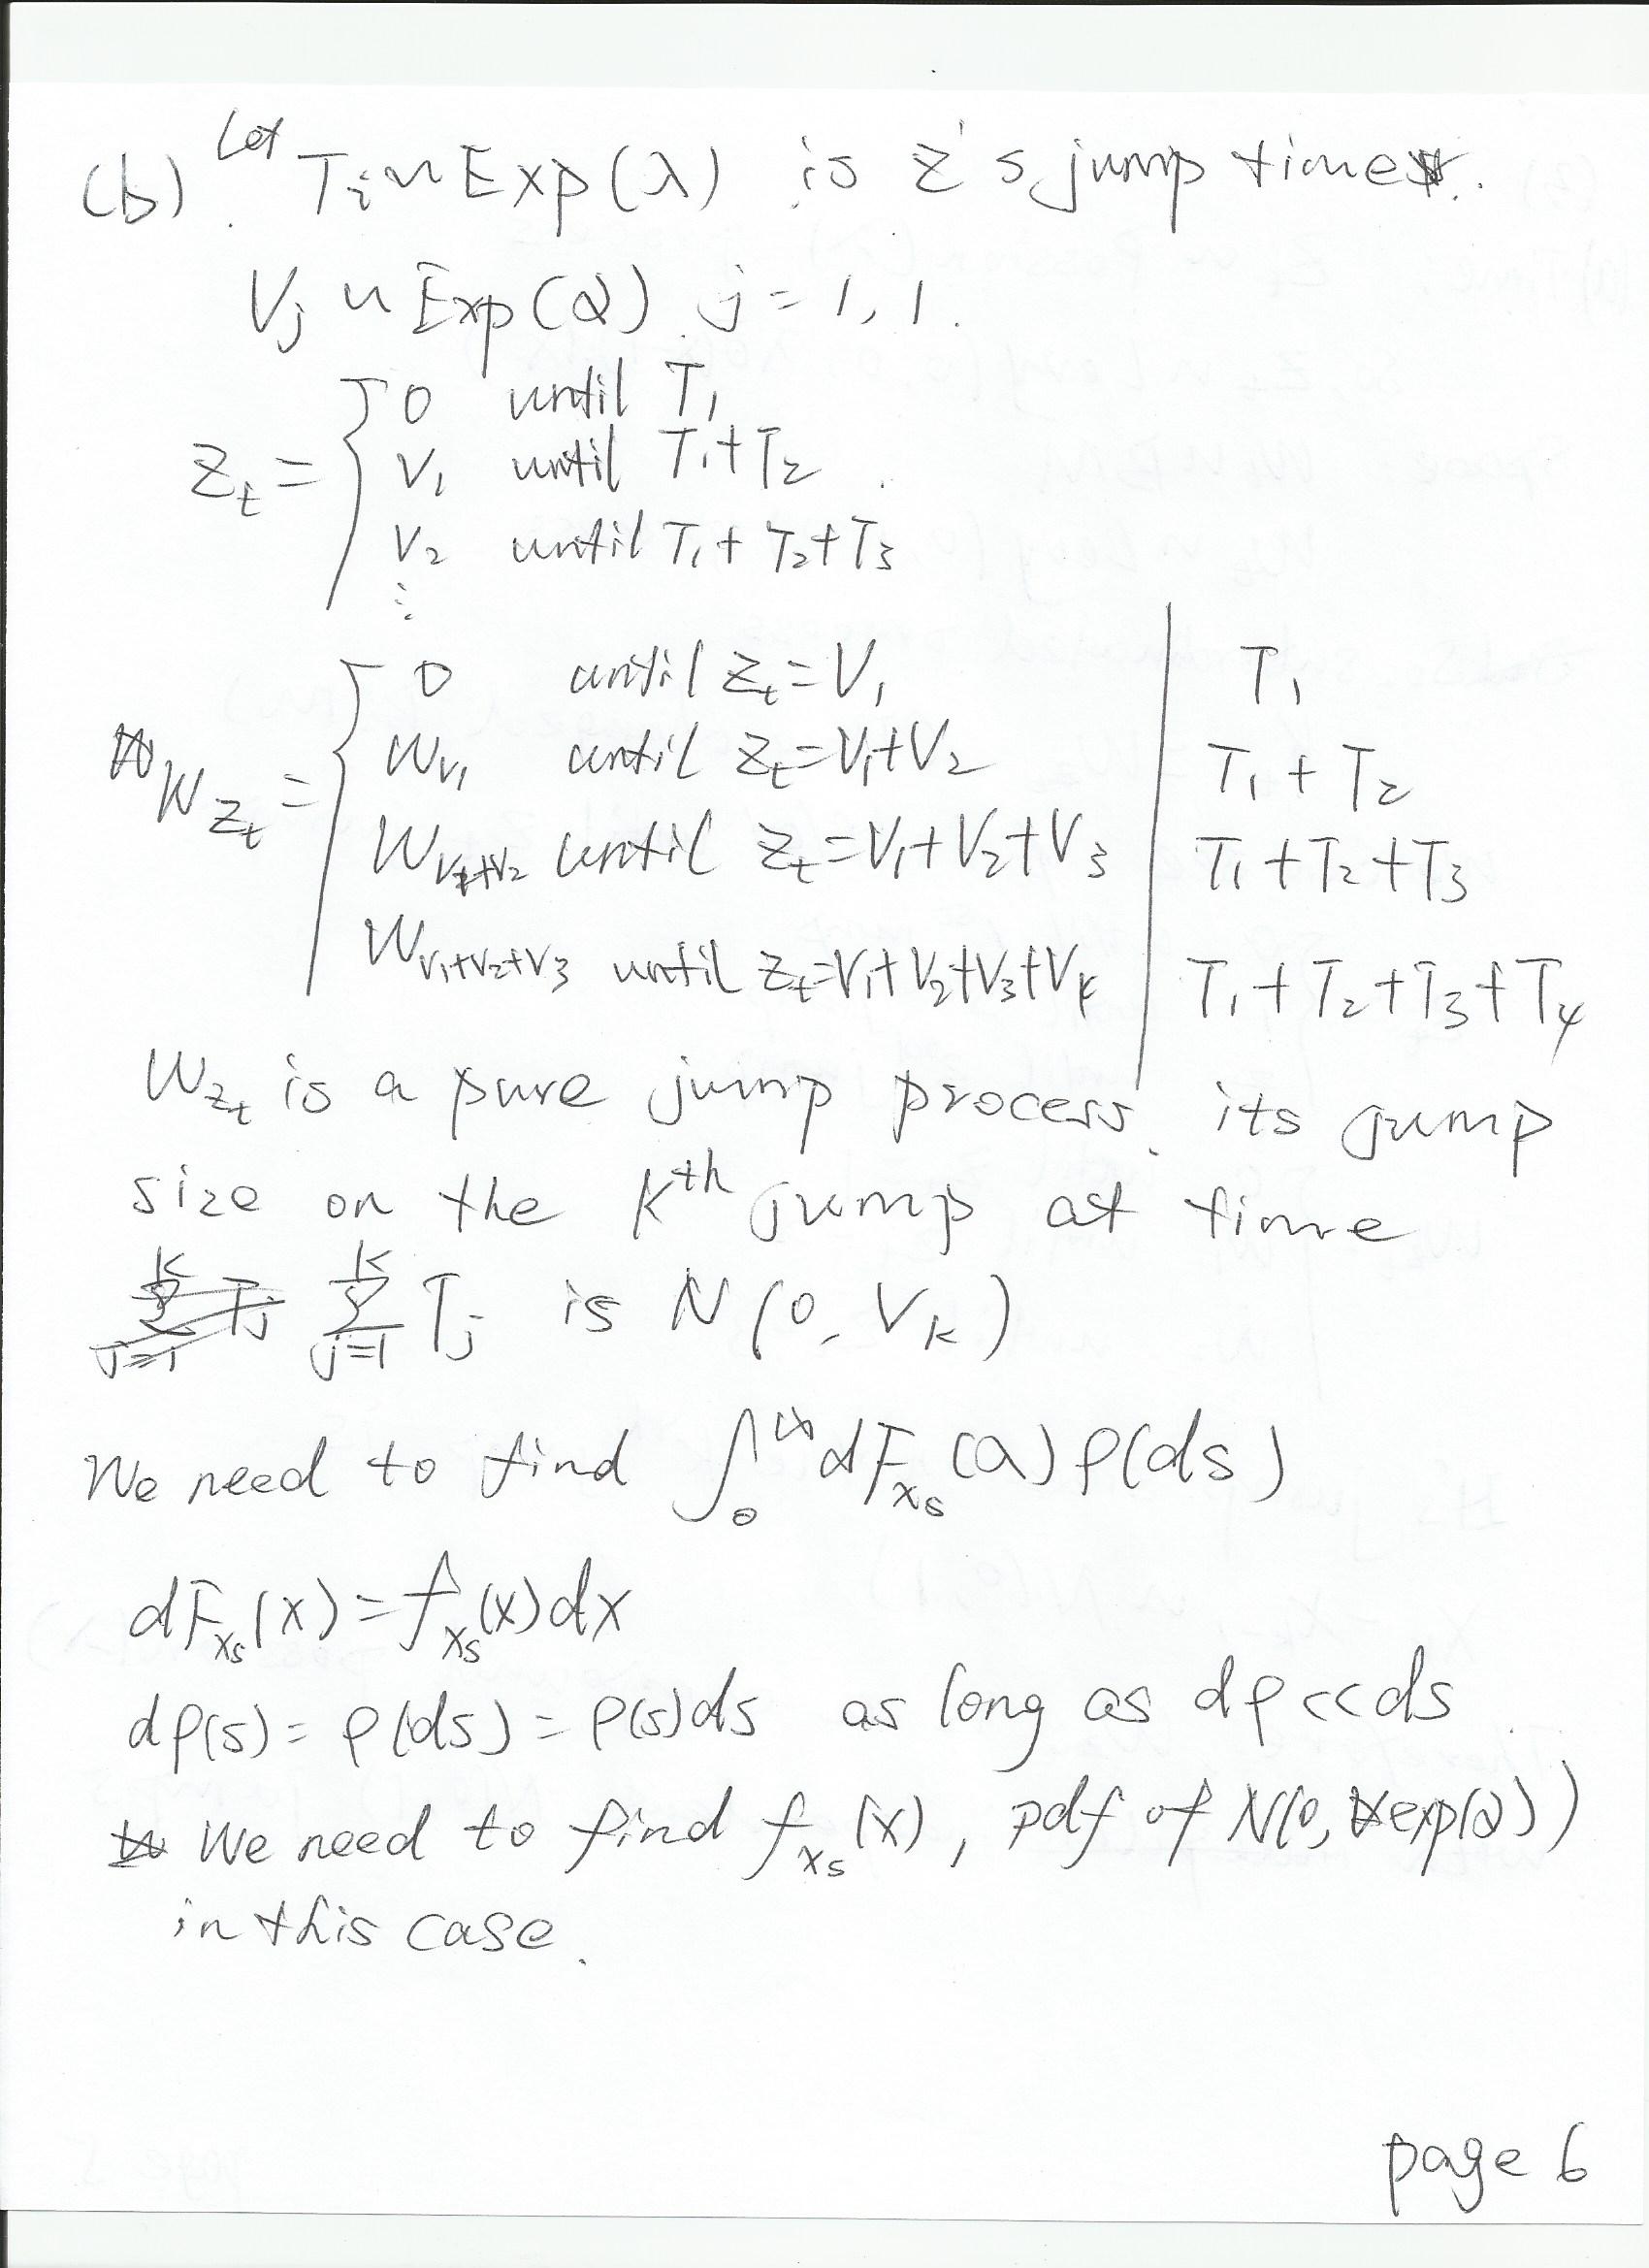 Let
(b). Ti ~ Exp(λ) is Z's jump time.
Vj ~ Exp(Q) j = 1, 1.
Zt = { 0 until T1
V1 until T1+T2
V2 until T1+T2+T3
⋮
WZt = { 0 until Zt=V1 | T1
WV1 until Zt=V1+V2 | T1+T2
WV1+V2 until Zt=V1+V2+V3 | T1+T2+T3
WV1+V2+V3 until Zt=V1+V2+V3+V4 | T1+T2+T3+T4
WZt is a pure jump process. its jump
size on the Kth jump at time
∑_{j=1}^{K} Tj is N(0, VK)
We need to find ∫_0^∞ dF_{Xs}(a) ρ(ds)
dF_{Xs}(x) = f_{Xs}(x)dx
dρ(s) = ρ(ds) = ρ(s)ds as long as dρ<<ds.
We need to find f_{Xs}(x), pdf of N(0, exp(Q))
in this case.
page 6